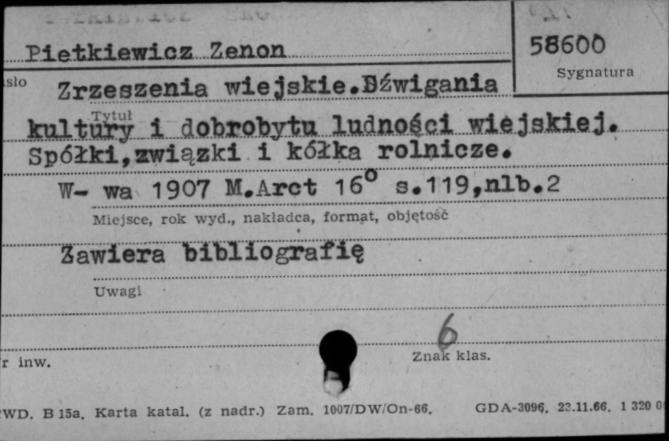 Pietkiewicz Zenon
58600
Sygnatura
sło Zrzeszenia wiejskie.Dźwigania
Tytuł
kultury i dobrobytu ludności wiejskiej.
Spółki,związki i kółka rolnicze.
W- wa 1907 M.Arct 16° s.119,nlb.2
Miejsce, rok wyd., nakładca, format, objętość
Zawiera bibliografię
Uwagi
6
r inw.
Znak klas.
WD. B 15a. Karta katal. (z nadr.) Zam. 1007/DW/On-66. GDA-3096. 22.11.66. 1 320 0